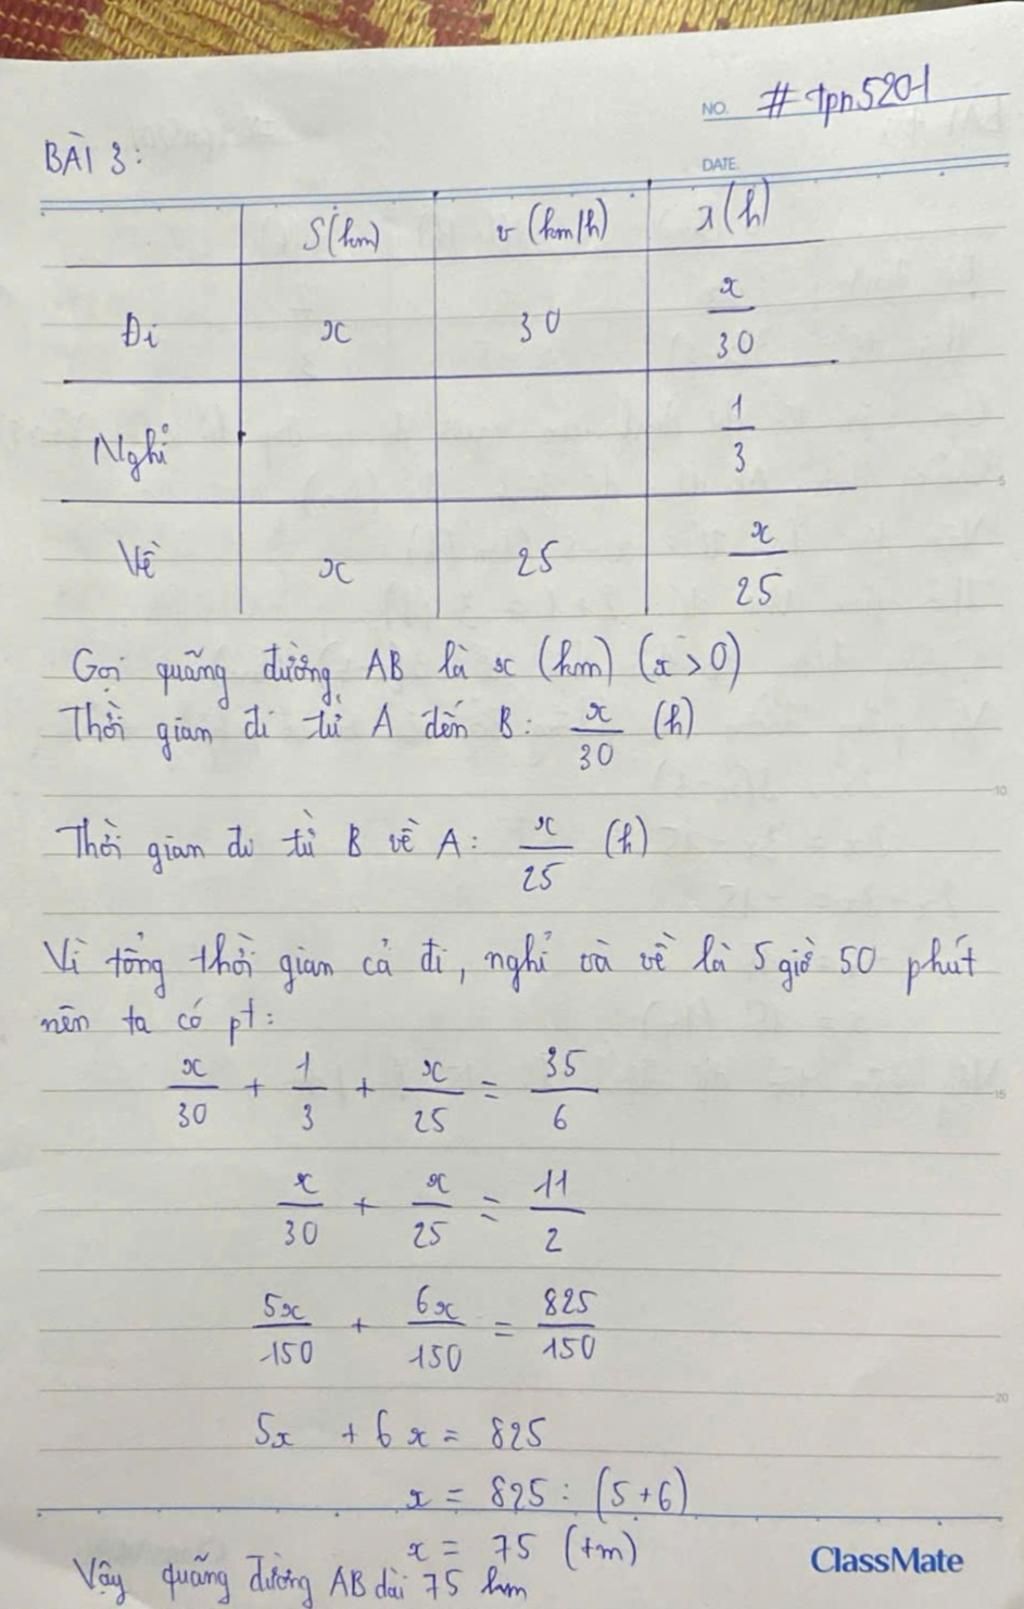 NO. #tpn5201
BÀI 3:
DATE.
S(km) v (km/h) t(h)
Đi x 30 x/30
Nghỉ 1/3
Về x 25 x/25
Gọi quãng đường AB là x (km) (x > 0)
Thời gian đi từ A đến B: x/30 (h)
Thời gian đi từ B về A: x/25 (h)
Vì tổng thời gian cả đi, nghỉ và về là 5 giờ 50 phút
nên ta có pt:
x/30 + 1/3 + x/25 = 35/6
x/30 + x/25 = 11/2
5x/150 + 6x/150 = 825/150
5x + 6x = 825
x = 825 : (5+6)
x = 75 (tm)
Vậy quãng đường AB dài 75 km
ClassMate
5
10
15
20